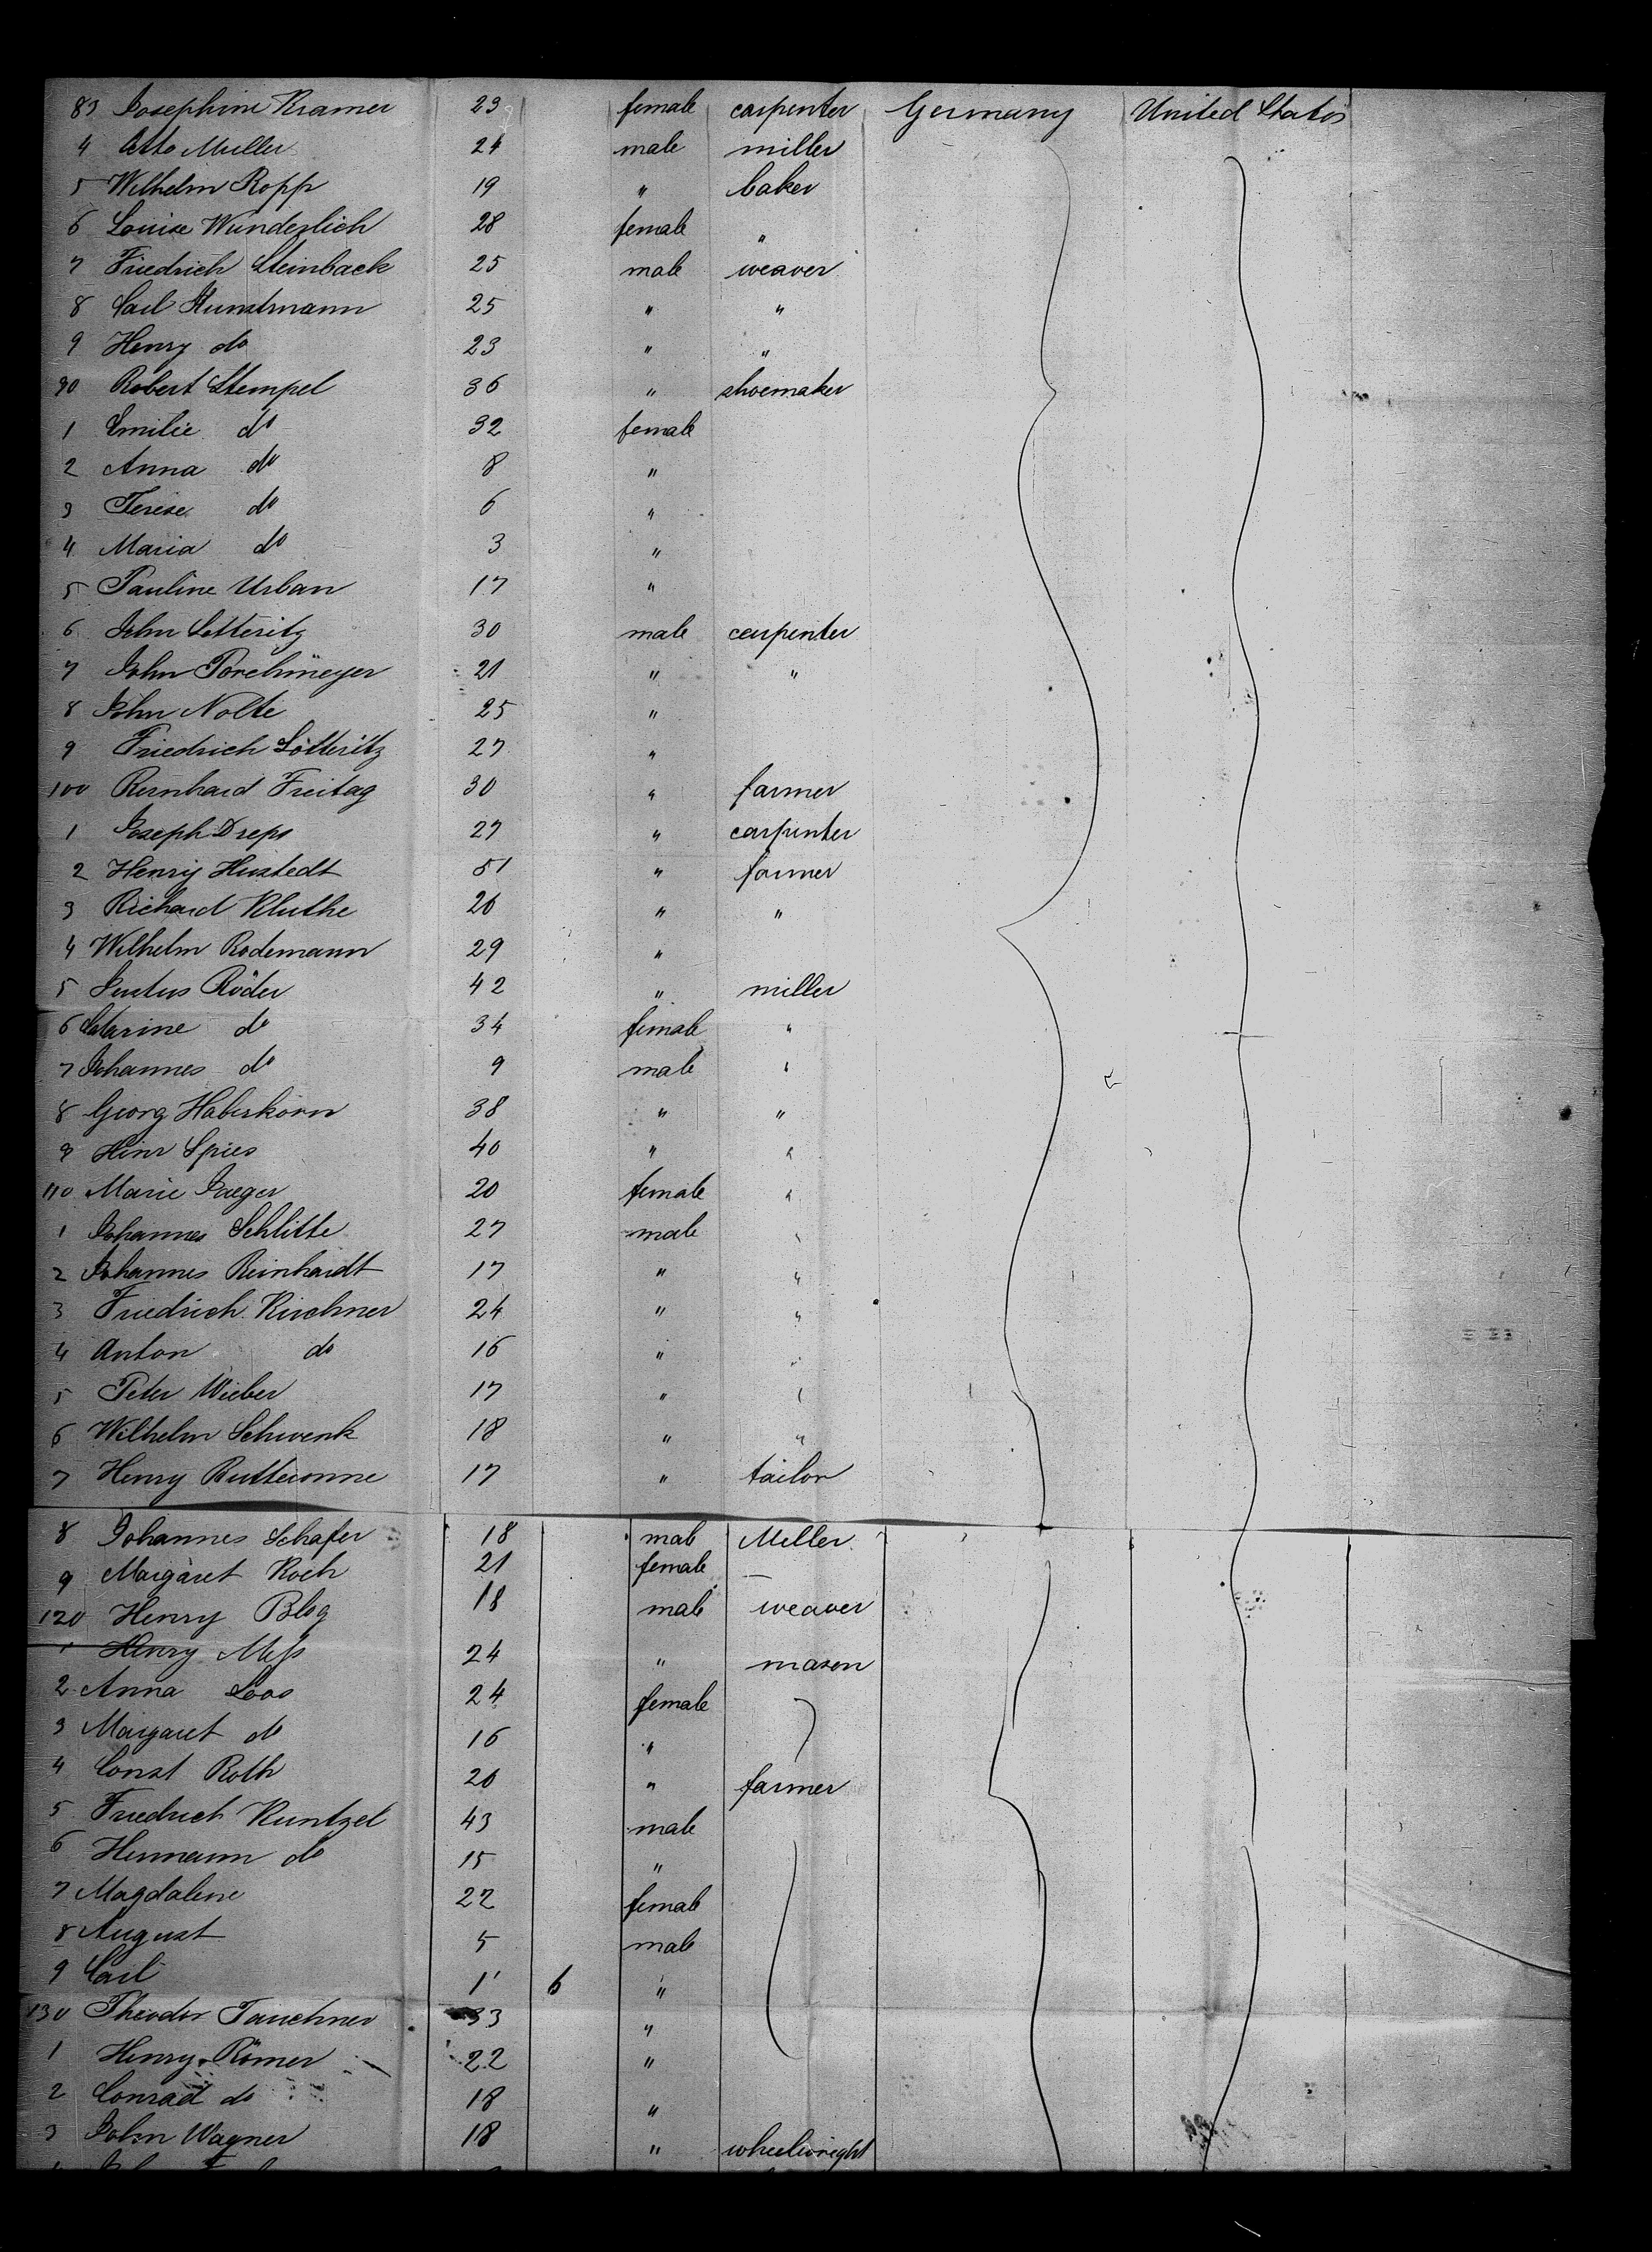 83 Josephine Kramer 23 female carpenter Germany United States
4 Otto Muller 24 male miller
5 Wilhelm Ropp 19 " baker
6 Louise Wunderlich 28 female "
7 Friedrich Steinback 25 male weaver
8 Carl Kunstmann 25 " "
9 Henry do 23 " "
90 Robert Stempel 36 " shoemaker
1 Emilie do 32 female
2 Anna do 8 "
3 Terese do 6 "
4 Maria do 3 "
5 Pauline Urban 17 "
6 John Lotteritz 30 male carpenter
7 John Porchmeyer 21 " "
8 John Nolte 25 "
9 Friedrich Lotteritz 27 "
100 Bernhard Freitag 30 " farmer
1 Joseph Dreps 27 " carpenter
2 Henry Hustedt 51 " farmer
3 Richard Kluthe 26 " "
4 Wilhelm Rodemann 29 "
5 Justus Röder 42 " miller
6 Catarine do 34 female "
7 Johannes do 9 male "
8 Georg Haberkorn 38 " "
9 Hinr Spies 40 " "
110 Marie Jaeger 20 female "
1 Johannes Schlitte 27 male "
2 Johannes Reinhardt 17 " "
3 Friedrich Kirchner 24 " "
4 Anton do 16 " "
5 Peter Wieber 17 " "
6 Wilhelm Schwenk 18 " "
7 Henry 17 " tailor
8 Johannes Schafer 18 male Miller
9 Margaret Koch 21 female —
120 Henry 18 male weaver
1 Henry 24 " mason
2 Anna Loos 24 female
3 Margaret do 16 "
4 Const Roth 26 " farmer
5 Friedrich Kuntzel 43 male
6 Hermann do 15 "
7 Magdalene 22 female
8 August 5 male
9 Carl 1 6 "
130 Theodor Tauchner 33 "
1 Henry Römer 22 "
2 Conrad do 18 "
3 John Wagner 18 " wheelwright